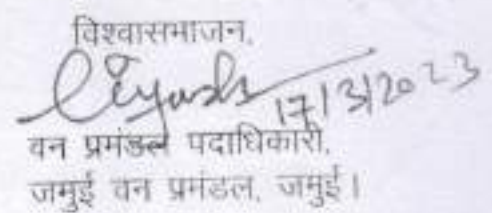 विश्वासभाजन,
17/3/2023
वन प्रमंडल पदाधिकारी,
जमुई वन प्रमंडल, जमुई।